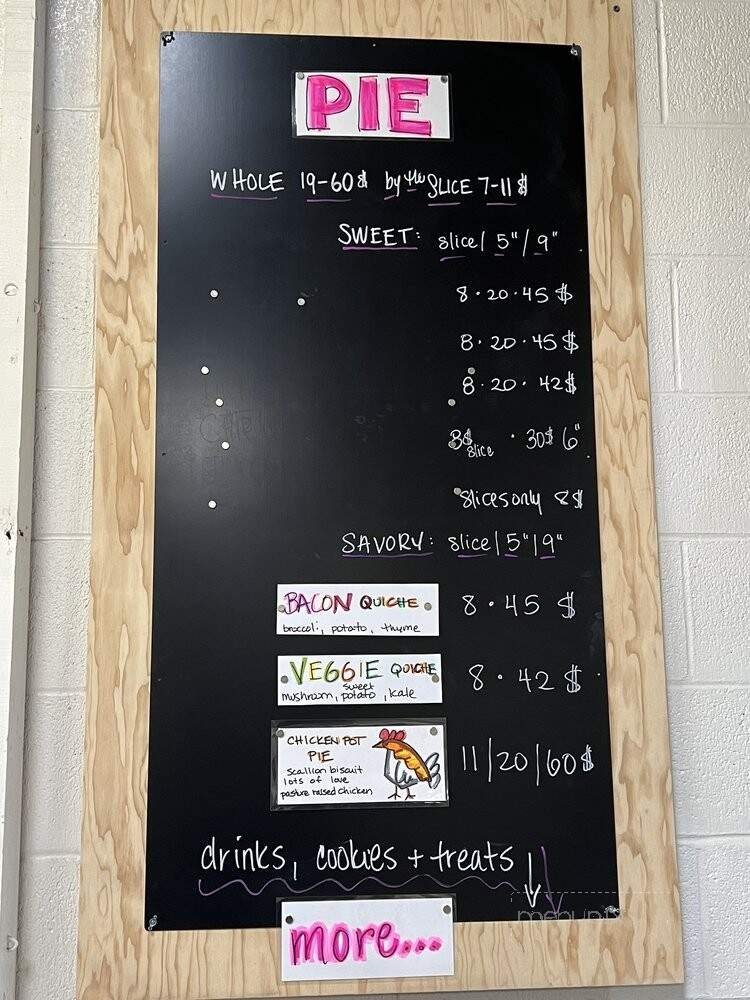 PIE
WHOLE 19-60$ by the SLICE 7-11$
SWEET: slice/ 5"/ 9"
8·20·45 $
8·20·45 $
8·20·42$
8$ slice · 30$ 6"
slices only 8$
SAVORY: slice|5"|9"
BACON QUICHE
broccoli, potato, thyme
8·45 $
VEGGIE QUICHE
mushroom, sweet potato, kale
8·42 $
CHICKEN POT
PIE
scallion biscuit
lots of love
pasture raised chicken
11/20/60$
drinks, cookies + treats
more...